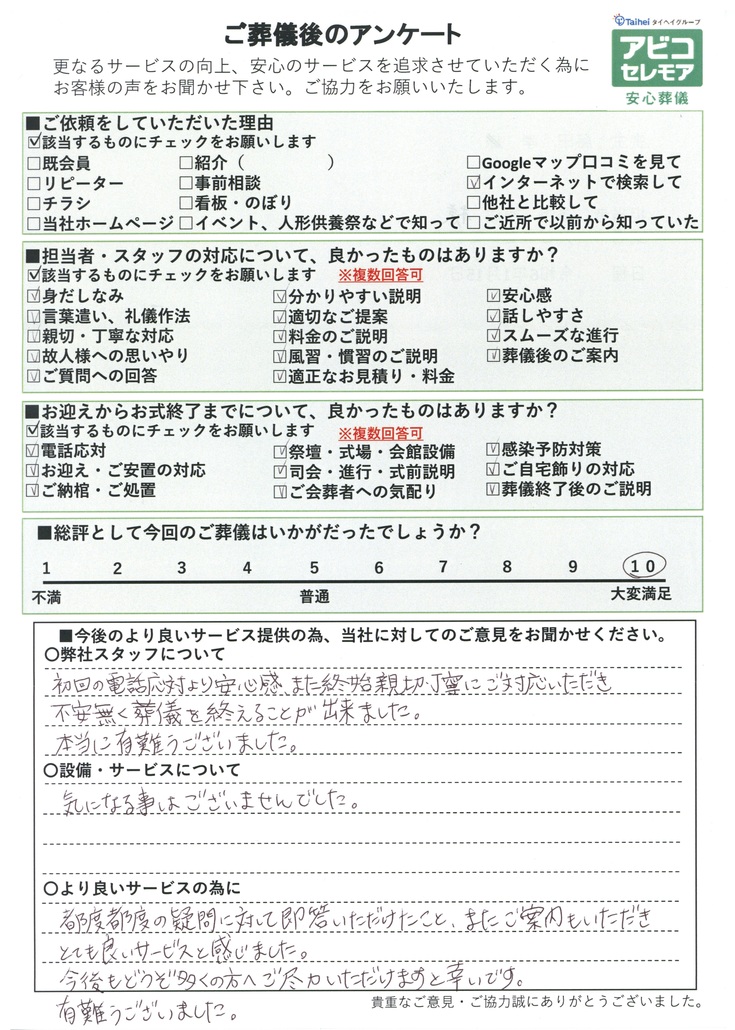 ご葬儀後のアンケート
Taihei タイヘイグループ
アビコ
セレモア
安心葬儀
更なるサービスの向上、安心のサービスを追求させていただく為に
お客様の声をお聞かせ下さい。ご協力をお願いいたします。
■ご依頼をしていただいた理由
☑該当するものにチェックをお願いします
□既会員 □紹介（　　　　　） □Googleマップ口コミを見て
□リピーター □事前相談 ☑インターネットで検索して
□チラシ □看板・のぼり □他社と比較して
□当社ホームページ □イベント、人形供養祭などで知って □ご近所で以前から知っていた
■担当者・スタッフの対応について、良かったものはありますか？
☑該当するものにチェックをお願いします ※複数回答可
☑身だしなみ ☑分かりやすい説明 ☑安心感
☑言葉遣い、礼儀作法 ☑適切なご提案 ☑話しやすさ
☑親切・丁寧な対応 ☑料金のご説明 ☑スムーズな進行
☑故人様への思いやり ☑風習・慣習のご説明 ☑葬儀後のご案内
☑ご質問への回答 ☑適正なお見積り・料金
■お迎えからお式終了までについて、良かったものはありますか？
☑該当するものにチェックをお願いします ※複数回答可
☑電話応対 ☑祭壇・式場・会館設備 ☑感染予防対策
☑お迎え・ご安置の対応 ☑司会・進行・式前説明 ☑ご自宅飾りの対応
☑ご納棺・ご処置 ☑ご会葬者への気配り ☑葬儀終了後のご説明
■総評として今回のご葬儀はいかがだったでしょうか？
1 2 3 4 5 6 7 8 9 10
不満 普通 大変満足
■今後のより良いサービス提供の為、当社に対してのご意見をお聞かせください。
〇弊社スタッフについて
初回の電話応対より安心感、また終始親切丁寧にご対応いただき
不安無く葬儀を終えることが出来ました。
本当に有難うございました。
〇設備・サービスについて
気になる事はございませんでした。
〇より良いサービスの為に
都度都度の疑問に対して即答いただけたこと、またご案内もいただき
とても良いサービスと感じました。
今後もどうぞ多くの方へご尽力いただけますと幸いです。
有難うございました。
貴重なご意見・ご協力誠にありがとうございました。